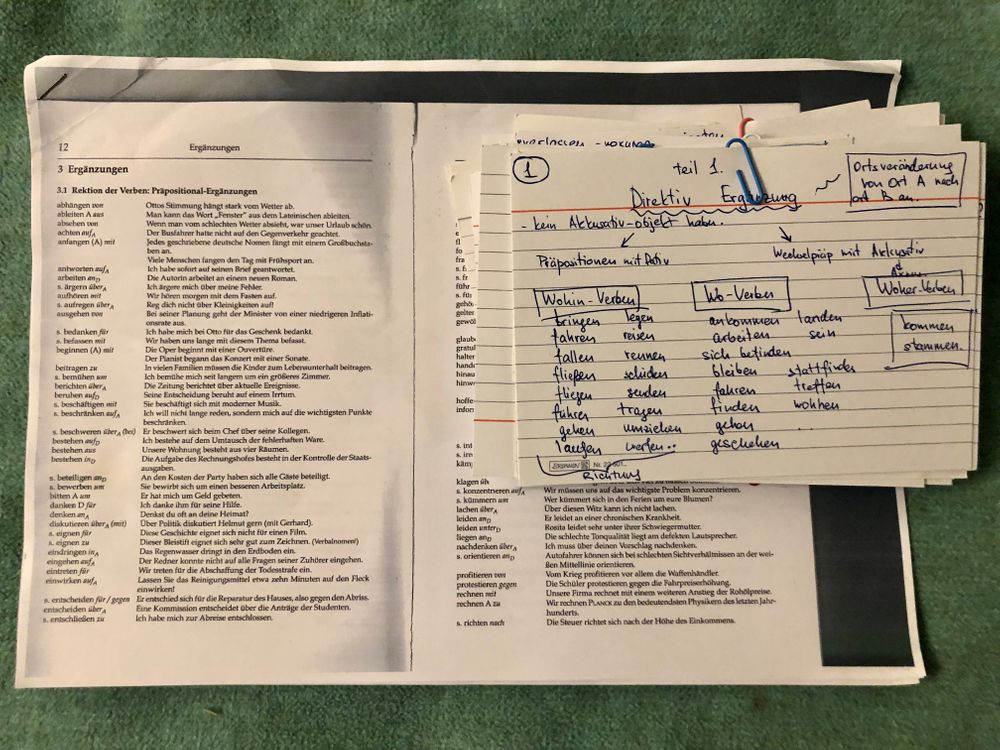 12
Ergänzungen
3 Ergänzungen
3.1 Rektion der Verben: Präpositional-Ergänzungen
abhängen von Ottos Stimmung hängt stark vom Wetter ab.
ableiten A aus Man kann das Wort „Fenster" aus dem Lateinischen ableiten.
absehen von Wenn man vom schlechten Wetter absieht, war unser Urlaub schön.
achten aufA Der Busfahrer hatte nicht auf den Gegenverkehr geachtet.
anfangen (A) mit Jedes geschriebene deutsche Nomen fängt mit einem Großbuchsta-
ben an.
Viele Menschen fangen den Tag mit Frühsport an.
antworten aufA Ich habe sofort auf seinen Brief geantwortet.
arbeiten anD Die Autorin arbeitet an einem neuen Roman.
s. ärgern überA Ich ärgere mich über meine Fehler.
aufhören mit Wir hören morgen mit dem Fasten auf.
s. aufregen überA Reg dich nicht über Kleinigkeiten auf!
ausgehen von Bei seiner Planung geht der Minister von einer niedrigeren Inflati-
onsrate aus.
s. bedanken für Ich habe mich bei Otto für das Geschenk bedankt.
s. befassen mit Wir haben uns lange mit diesem Thema befasst.
beginnen (A) mit Die Oper beginnt mit einer Ouvertüre.
Der Pianist begann das Konzert mit einer Sonate.
beitragen zu In vielen Familien müssen die Kinder zum Lebensunterhalt beitragen.
s. bemühen um Ich bemühe mich seit langem um ein größeres Zimmer.
berichten überA Die Zeitung berichtet über aktuelle Ereignisse.
beruhen aufD Seine Entscheidung beruht auf einem Irrtum.
s. beschäftigen mit Sie beschäftigt sich mit moderner Musik.
s. beschränken aufA Ich will nicht lange reden, sondern mich auf die wichtigsten Punkte
beschränken.
s. beschweren überA (bei) Er beschwert sich beim Chef über seine Kollegen.
bestehen aufD Ich bestehe auf dem Umtausch der fehlerhaften Ware.
bestehen aus Unsere Wohnung besteht aus vier Räumen.
bestehen inD Die Aufgabe des Rechnungshofes besteht in der Kontrolle der Staats-
ausgaben.
s. beteiligen anD An den Kosten der Party haben sich alle Gäste beteiligt.
s. bewerben um Sie bewirbt sich um einen besseren Arbeitsplatz.
bitten A um Er hat mich um Geld gebeten.
danken D für Ich danke ihm für seine Hilfe.
denken anA Denkst du oft an deine Heimat?
diskutieren überA (mit) Über Politik diskutiert Helmut gern (mit Gerhard).
s. eignen für Diese Geschichte eignet sich nicht für einen Film.
s. eignen zu Dieser Bleistift eignet sich sehr gut zum Zeichnen. (Verbalnomen!)
eindringen inA Das Regenwasser dringt in den Erdboden ein.
eingehen aufA Der Redner konnte nicht auf alle Fragen seiner Zuhörer eingehen.
eintreten für Wir treten für die Abschaffung der Todesstrafe ein.
einwirken aufA Lassen Sie das Reinigungsmittel etwa zehn Minuten auf den Fleck
einwirken!
s. entscheiden für / gegen Er entschied sich für die Reparatur des Hauses, also gegen den Abriss.
entscheiden überA Eine Kommission entscheidet über die Anträge der Studenten.
s. entschließen zu Ich habe mich zur Abreise entschlossen.
1
teil 1.
Direktiv Ergänzung
Ortsveränderung
von Ort A nach
ort B an.
- kein Akkusativ-objekt haben.
Präpositionen mit Dativ
Wechselpräp mit Akkusativ
Wohin-Verben Wo-Verben Woher-Verben
bringen legen ankommen landen kommen
fahren reisen arbeiten sein stammen.
fallen rennen sich befinden
fließen schicken bleiben stattfinden
fliegen senden fahren treffen
führen tragen finden wohnen
gehen umziehen gehen ...
laufen werfen.. geschehen
Richtung
klagen üb
s. konzentrieren aufA Wir müssen uns auf das wichtigste Problem konzentrieren.
s. kümmern um Wer kümmert sich in den Ferien um eure Blumen?
lachen überA Über diesen Witz kann ich nicht lachen.
leiden anD Er leidet an einer chronischen Krankheit.
leiden unterD Rosita leidet sehr unter ihrer Schwiegermutter.
liegen anD Die schlechte Tonqualität liegt am defekten Lautsprecher.
nachdenken überA Ich muss über deinen Vorschlag nachdenken.
s. orientieren anD Autofahrer können sich bei schlechten Sichtverhältnissen an der wei-
ßen Mittellinie orientieren.
profitieren von Vom Krieg profitieren vor allem die Waffenhändler.
protestieren gegen Die Schüler protestieren gegen die Fahrpreiserhöhung.
rechnen mit Unsere Firma rechnet mit einem weiteren Anstieg der Rohölpreise.
rechnen A zu Wir rechnen PLANCK zu den bedeutendsten Physikern des letzten Jahr-
hunderts.
s. richten nach Die Steuer richtet sich nach der Höhe des Einkommens.